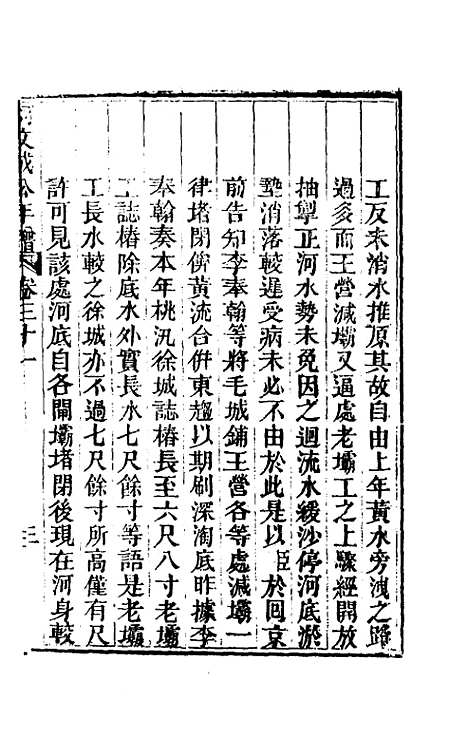 工反未消水推原其故自由上年黃水旁洩之路
過多而王營減壩又逼處老壩工之上驟經開放
抽掣正河水勢未免因之迴流水緩沙停河底淤
墊消落較遲受病未必不由於此是以臣於回京
前告知李奉翰等將毛城鋪王營各等處減壩一
律堵閉俾黃流合併東趨以期刷深淘底昨據李
奉翰奏本年桃汛徐城誌樁長至六尺八寸老壩
工誌樁除底水外實長水七尺餘寸等語是老壩
工長水較之徐城亦不過七尺餘寸所高僅有尺
許可見該處河底自各閘壩堵閉後現在河身較
文成公年譜 卷三十一 三